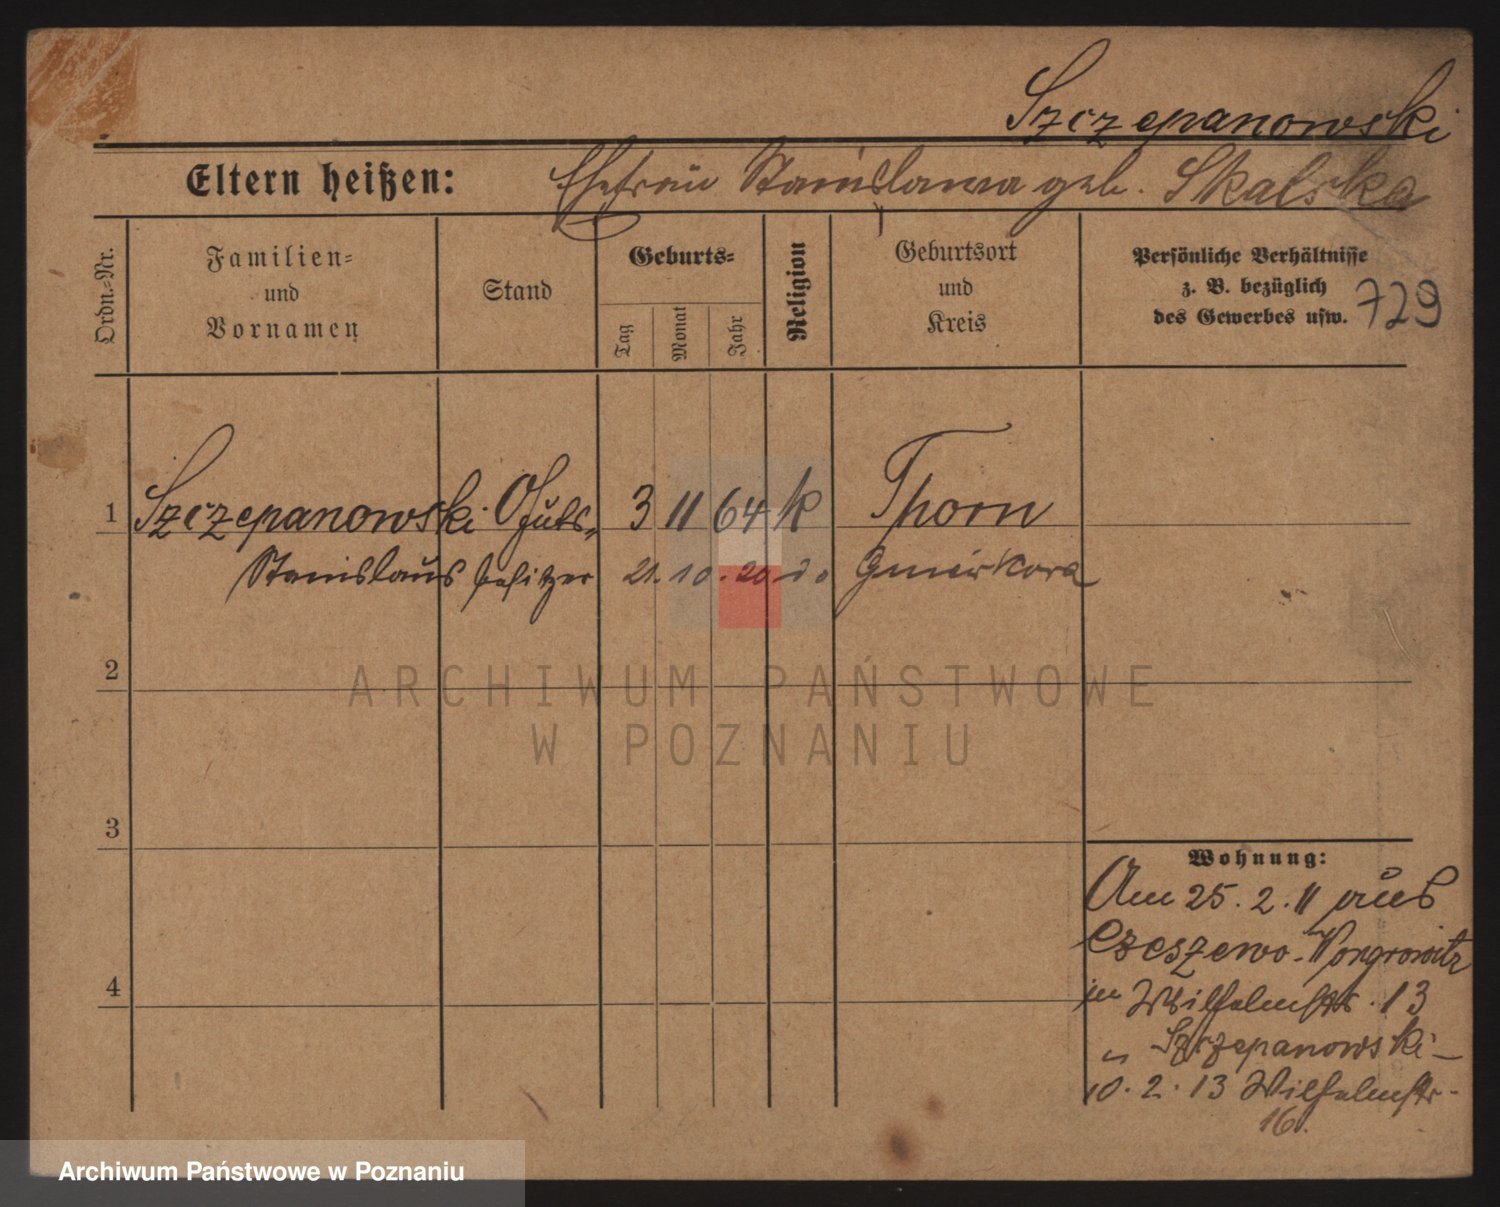 Szczepanowski
Eltern heißen: Ehefrau Stanislawa geb. Skalska
Ordn.-Nr.
Familien-
und
Vornamen
Stand
Geburts-
Tag
Monat
Jahr
Religion
Geburtsort
und
Kreis
Persönliche Verhältnisse
z. B. bezüglich
des Gewerbes usw.
729
1 Szczepanowski Guts- 3 11 64 k Thorn
Stanislaus besitzer 21. 10. 20 do
2
ARCHIWUM PAŃSTWOWE
W POZNANIU
3
4
Wohnung:
Am 25. 2. 11 aus
Czeszewo-Wongrowitz
in Wilhelmstr. 13
" Szczepanowski-
10. 2. 13 Wilhelmstr.
16.
Archiwum Państwowe w Poznaniu